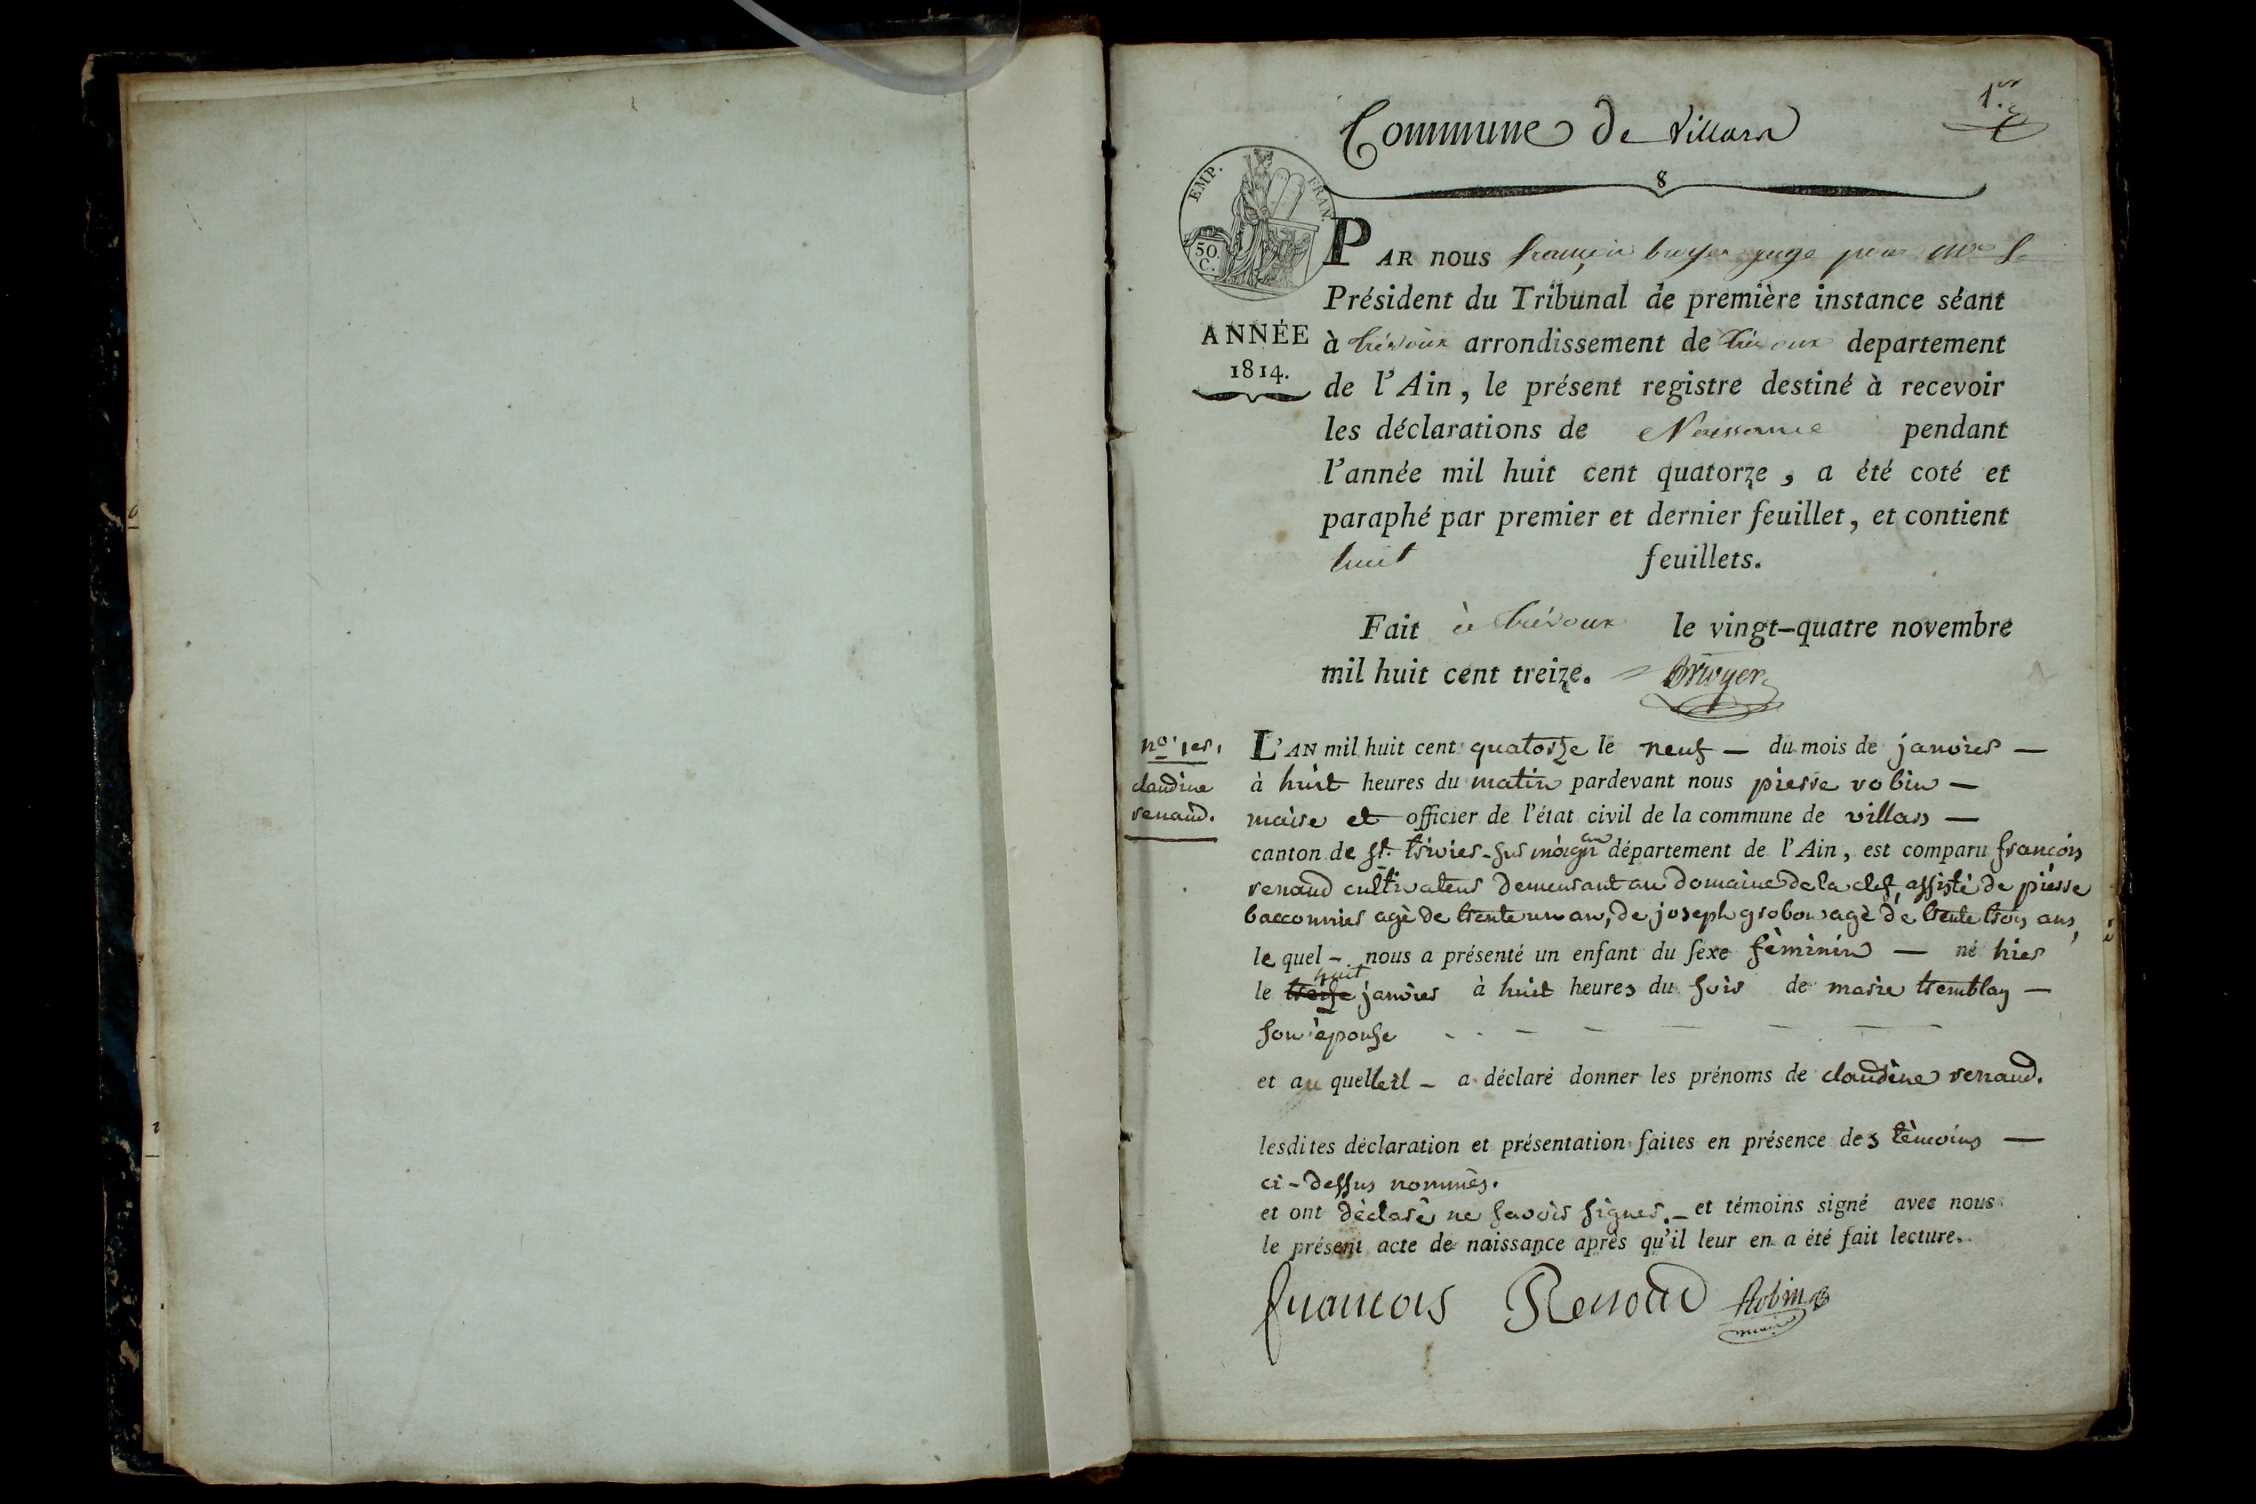 1er
Commune de Villars
8
EMP. FRAN.
50. C.
PAR nous françois bruyer juge pour Mr le
Président du Tribunal de première instance séant
ANNÉE
1814.
à trévoux arrondissement de trévoux departement
de l'Ain, le présent registre destiné à recevoir
les déclarations de Naissance pendant
l'année mil huit cent quatorze, a été coté et
paraphé par premier et dernier feuillet, et contient
huit feuillets.
Fait à trévoux le vingt-quatre novembre
mil huit cent treize. Bruyer
no. 1er.
claudine
renaud.
L'AN mil huit cent quatorze le neuf — du mois de janvier —
à huit heures du matin pardevant nous pierre robin —
maire et officier de l'état civil de la commune de villars —
canton de st. trivier-sur moignan département de l'Ain, est comparu françois
renaud cultivateur demeurant au domaine de la clef, assisté de pierre
bacconnier agè de trente un an, de joseph grobon agè de trente trois ans,
le quel - nous a présenté un enfant du sexe fèminin — né hier
le treize huit janvier à huit heures du soir de marie tremblay —
son èpouse
et au quel il - a déclaré donner les prénoms de claudine renaud.
lesdites déclaration et présentation faites en présence des tèmoins —
ci-dessus nommès.
et ont dèclarè ne savoir signer. - et témoins signé avec nous
le présent acte de naissance après qu'il leur en a été fait lecture.
francois Renoud Robin
maire